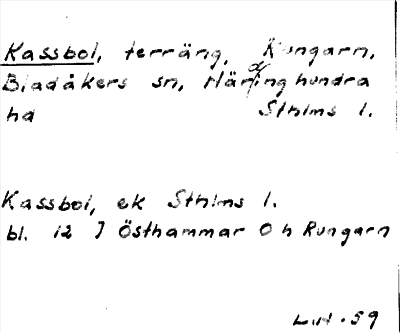 Kassbol, terräng, Rungarn,
Bladåkers sn, Närdinghundra
hd Sthlms l.
Kassbol, ek Sthlms l.
bl. 12 I Östhammar Oh Rungarn
L.H. 59